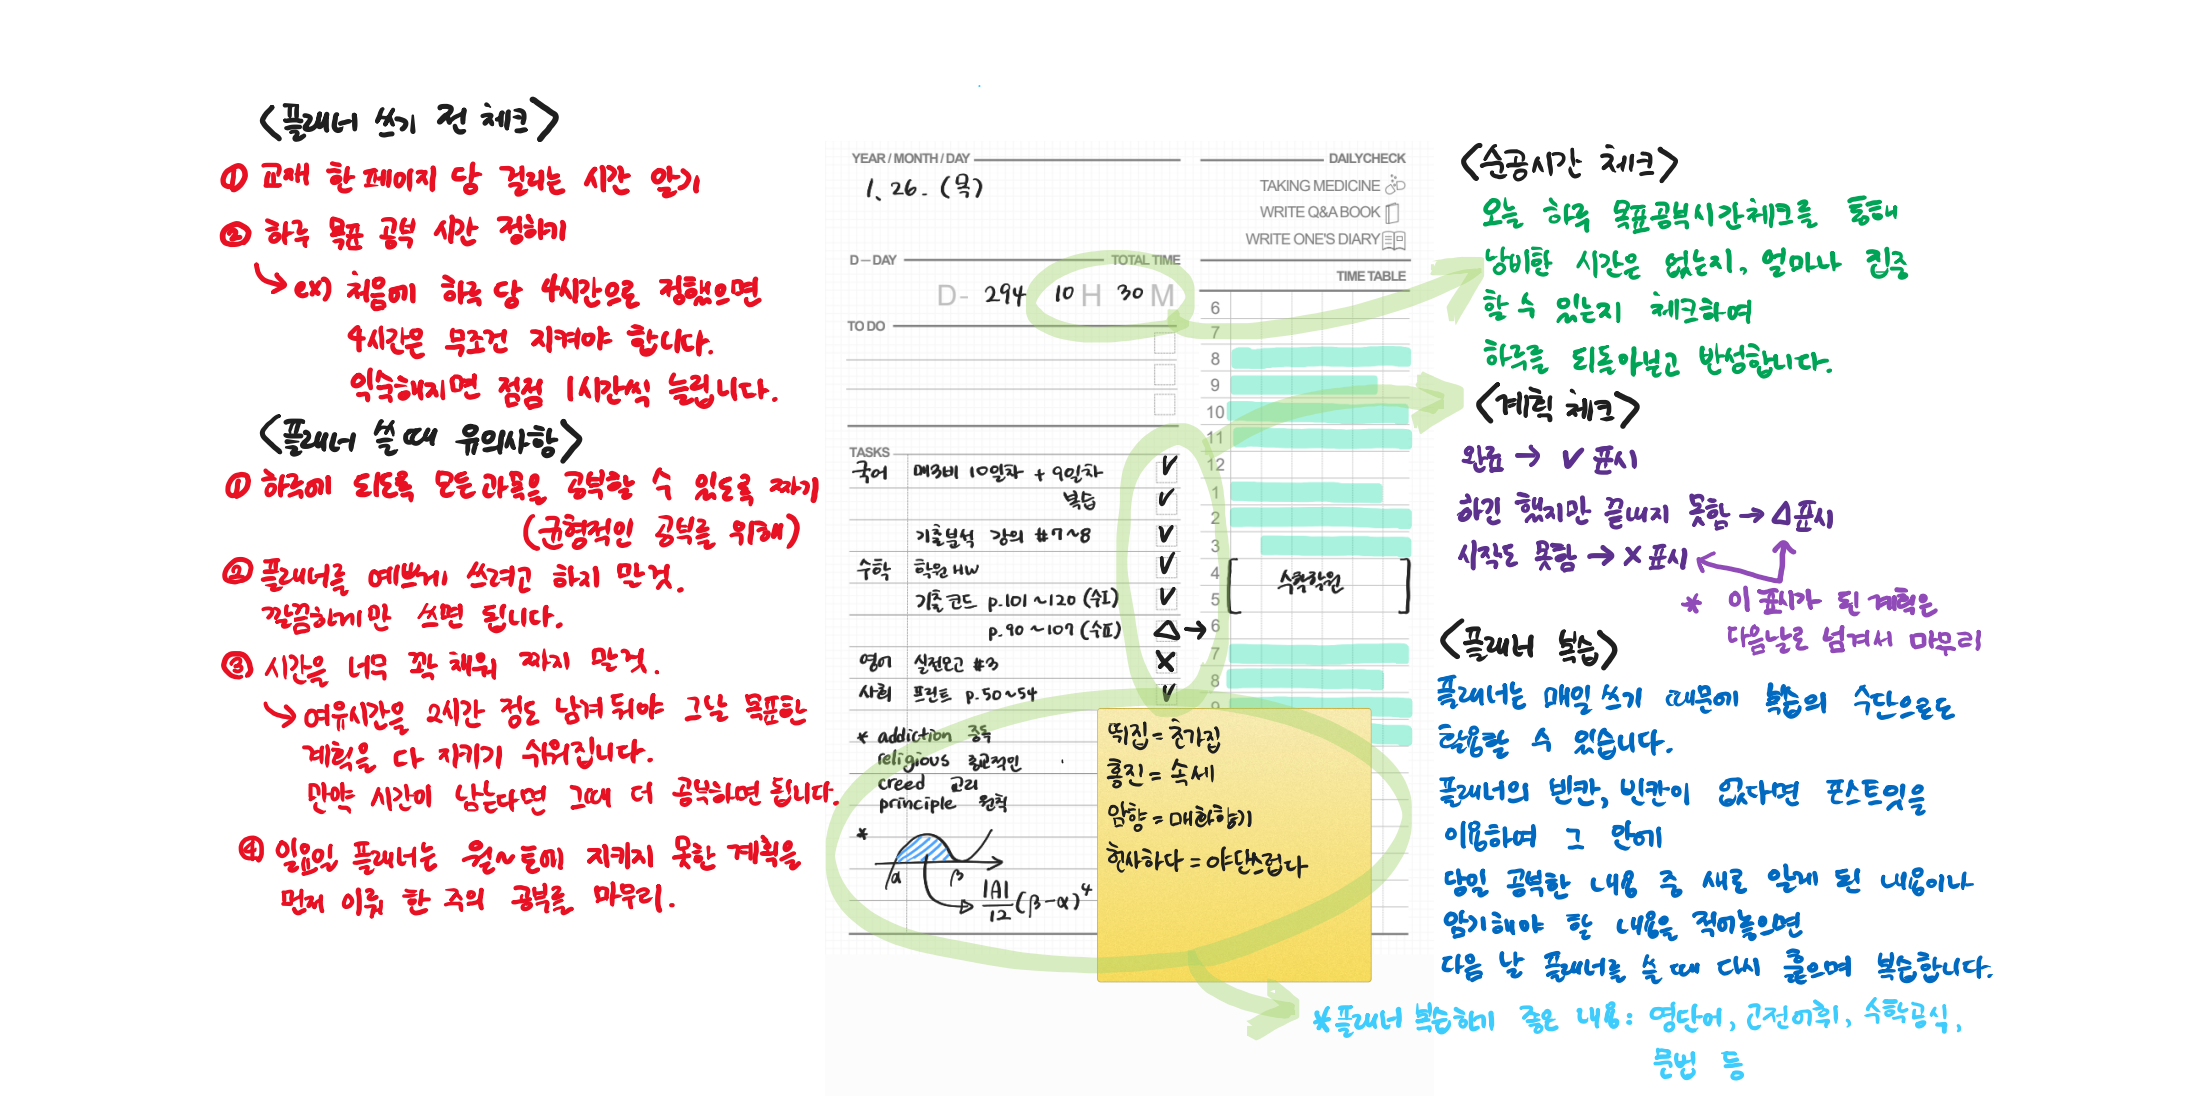 <플래너 쓰기 전 체크>
① 교재 한 페이지 당 걸리는 시간 알기
② 하루 목표 공부 시간 정하기
↳ ex) 처음에 하루 당 4시간으로 정했으면
4시간은 무조건 지켜야 합니다.
익숙해지면 점점 1시간씩 늘립니다.
<플래너 쓸 때 유의사항>
① 하루에 되도록 모든 과목을 공부할 수 있도록 짜기
(균형적인 공부를 위해)
② 플래너를 예쁘게 쓰려고 하지 말 것.
깔끔하게만 쓰면 됩니다.
③ 시간을 너무 꽉 채워 짜지 말 것.
↳ 여유시간을 2시간 정도 남겨 둬야 그날 목표한
계획을 다 지키기 쉬워집니다.
만약 시간이 남는다면 그때 더 공부하면 됩니다.
④ 일요일 플래너는 월~토에 지키지 못한 계획을
먼저 이뤄 한 주의 공부를 마무리.
YEAR / MONTH / DAY
1. 26. (목)
D-DAY
TOTAL TIME
D- 294 10 H 30 M
TO DO
TASKS
국어 매3비 10일차 + 9일차 ✓
복습 ✓
기출분석 강의 #7~8 ✓
수학 학원 HW ✓
기출코드 p.101~120 (수I) ✓
p.90~107 (수II) △ →
영어 실전모고 #3 ×
사회 프린트 p.50~54 ✓
* addiction 중독
religious 종교적인
creed 교리
principle 원칙
*
α β
|A|/12 (β-α)⁴
DAILYCHECK
TAKING MEDICINE
WRITE Q&A BOOK
WRITE ONE'S DIARY
TIME TABLE
6
7
8
9
10
11
12
1
2
3
4
5
수학학원
6
7
8
9
띠집 = 초가집
홍진 = 속세
암향 = 매화향기
헌사하다 = 야단스럽다
<순공시간 체크>
오늘 하루 목표공부시간체크를 통해
낭비한 시간은 없는지, 얼마나 집중
할 수 있는지 체크하여
하루를 되돌아보고 반성합니다.
<계획 체크>
완료 → ✓ 표시
하긴 했지만 끝내지 못함 → △ 표시
시작도 못함 → × 표시
* 이 표시가 된 계획은
다음날로 넘겨서 마무리
<플래너 복습>
플래너는 매일 쓰기 때문에 복습의 수단으로도
활용할 수 있습니다.
플래너의 빈칸, 빈칸이 없다면 포스트잇을
이용하여 그 안에
당일 공부한 내용 중 새로 알게 된 내용이나
암기해야 할 내용을 적어놓으면
다음 날 플래너를 쓸 때 다시 훑으며 복습합니다.
*플래너 복습하기 좋은 내용: 영단어, 고전어휘, 수학공식,
문법 등